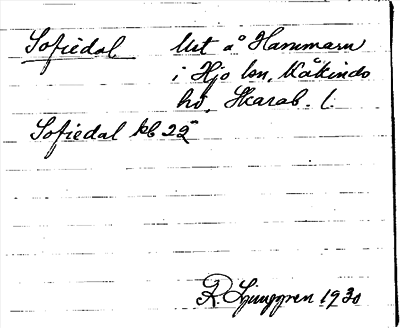 Sofiedal Ust å Hammarn
i Hjo lsn, Kåkinds
hd, Skarab. l.
Sofiedal kb 22
R. Ljunggren 1930